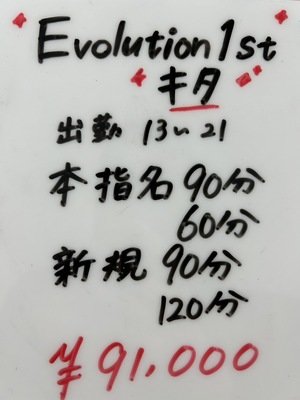 Evolution1st
キタ
出勤 13〜21
本指名 90分
60分
新規 90分
120分
¥91,000